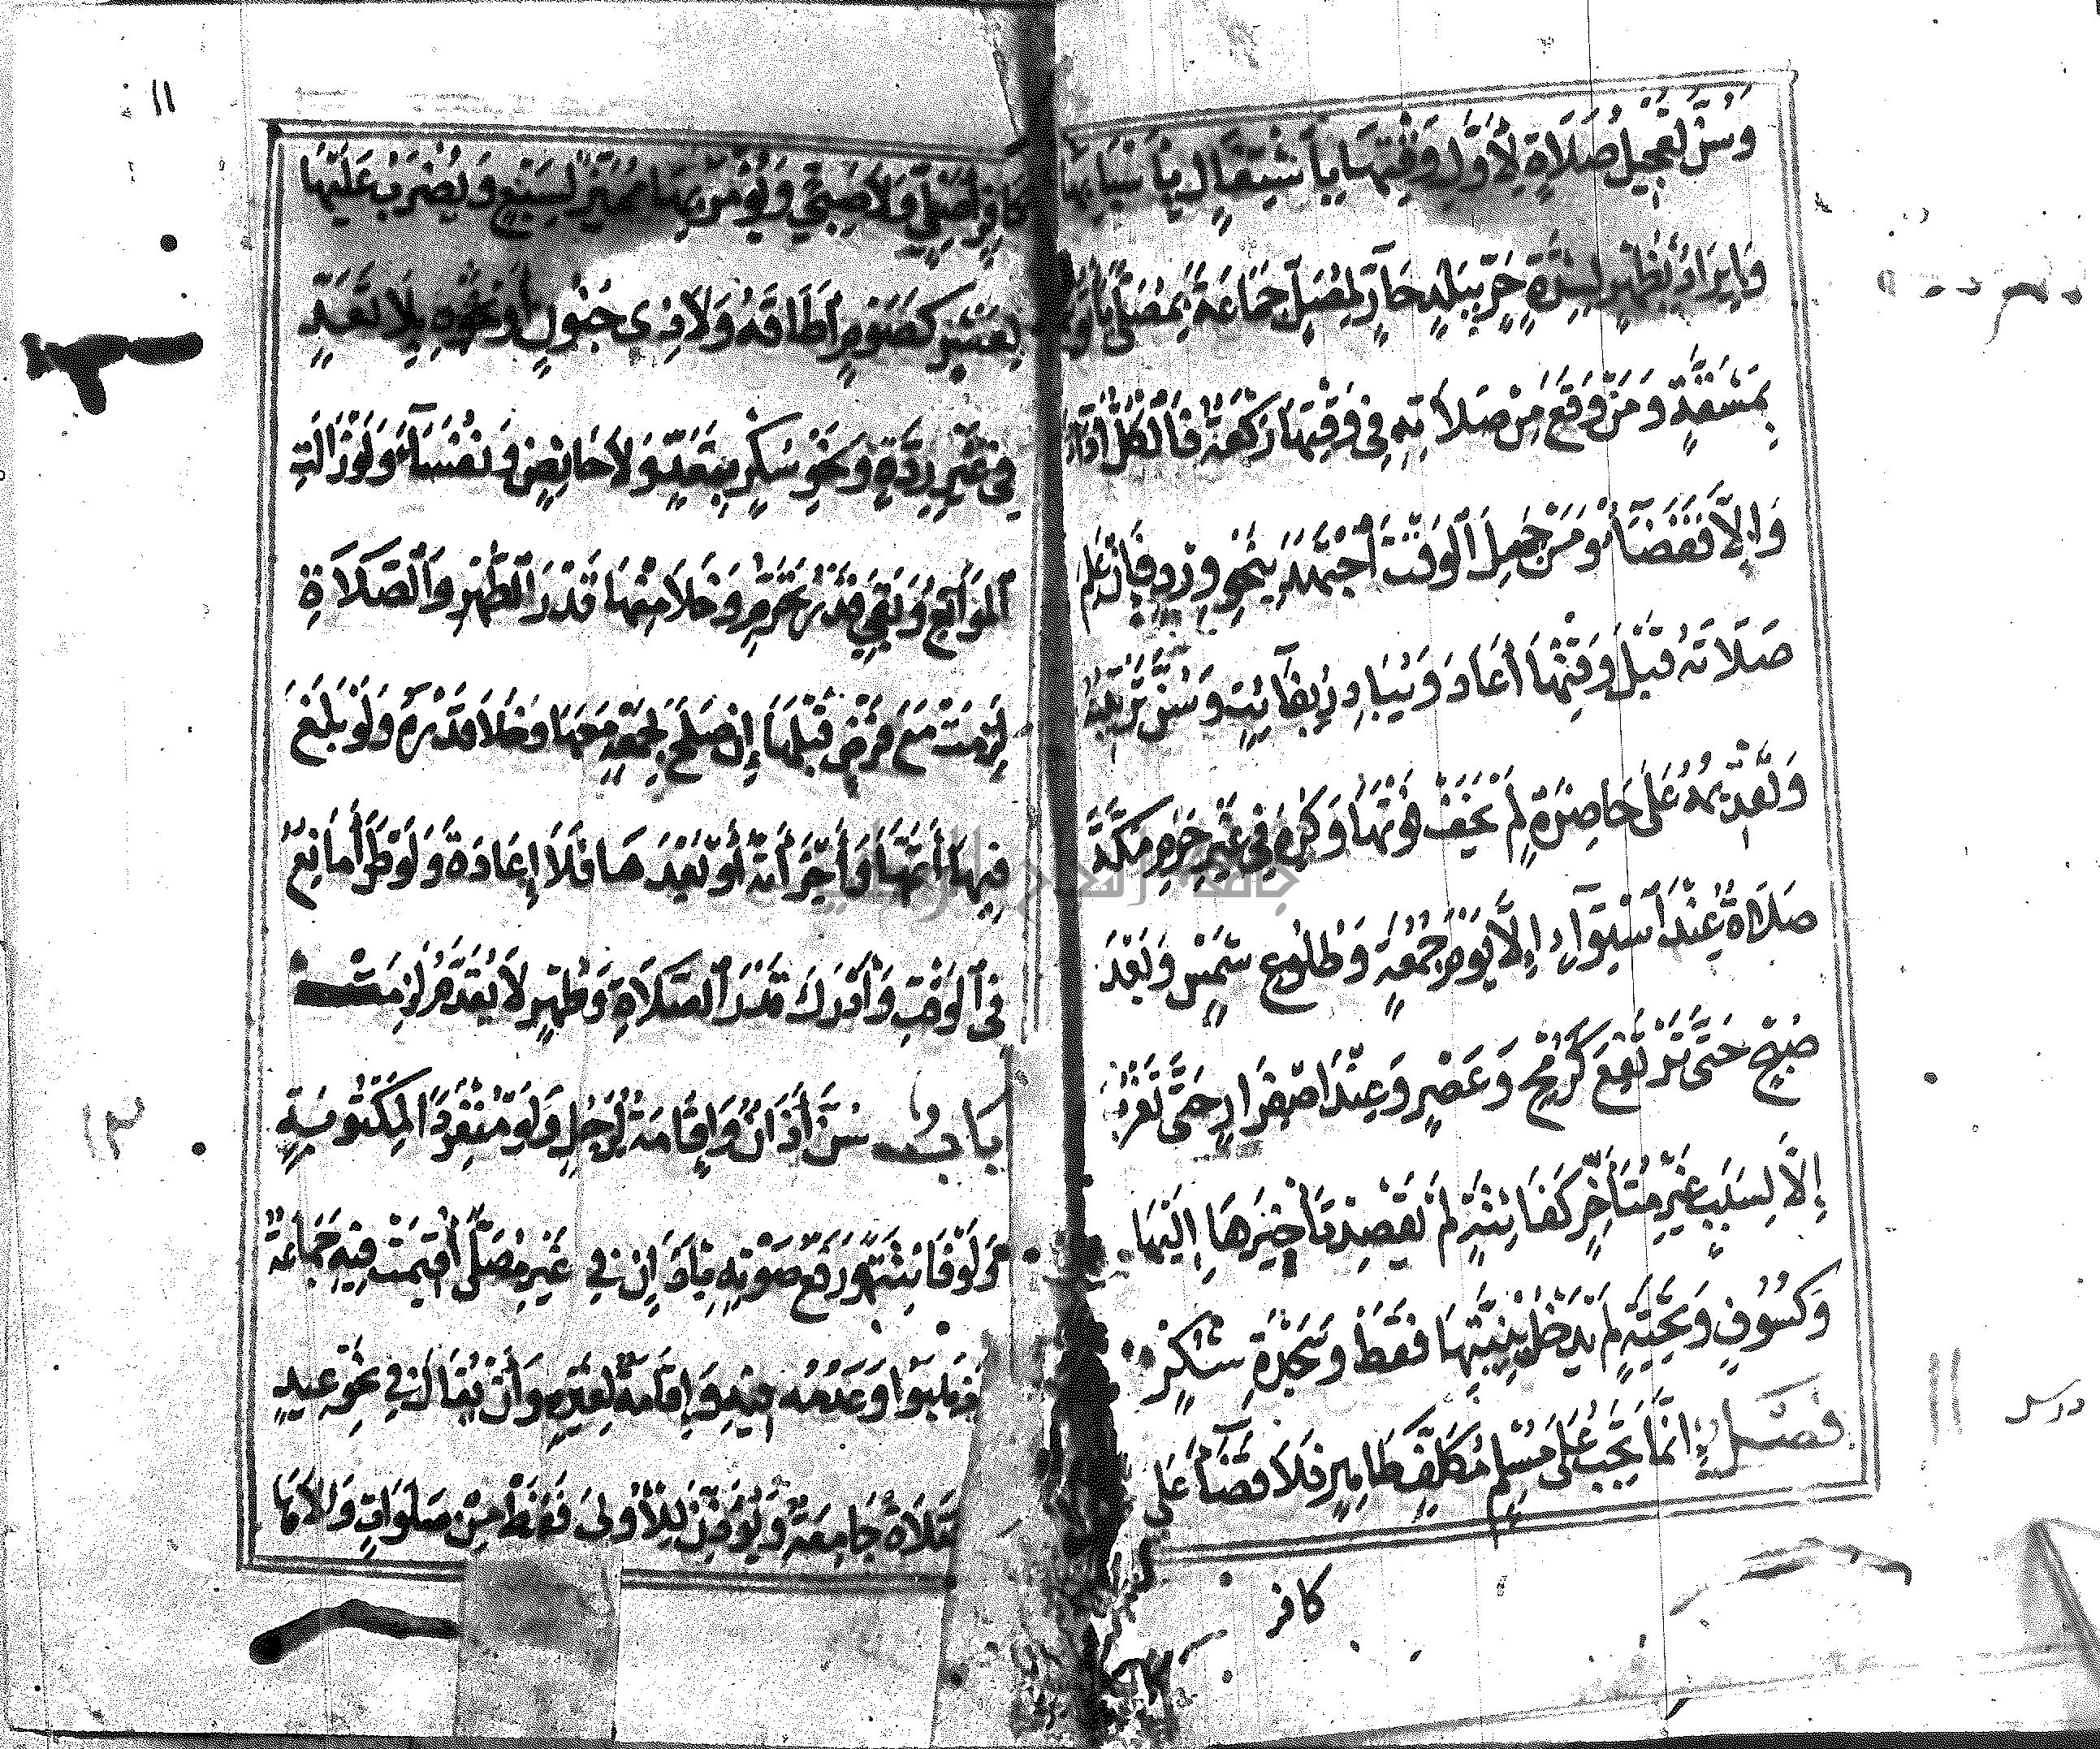 وَسُنَّ تَعْجِيلُ صَلَاةٍ لِأَوَّلِ وَقْتِهَا بِاشْتِغَالٍ بِأَسْبَابِهَا
وَإِبْرَادٌ بِظُهْرٍ لِشِدَّةِ حَرٍّ بِبَلَدٍ حَارٍّ لِمُصَلٍّ جَمَاعَةً بِمُصَلًّى يَأْتُونَهُ
بِمَشَقَّةٍ وَمَنْ وَقَعَ مِنْ صَلَاتِهِ فِي وَقْتِهَا رَكْعَةٌ فَالْكُلُّ أَدَآءٌ
وَإِلَّا فَقَضَآءٌ وَمَنْ جَهِلَ الْوَقْتَ اجْتَهَدَ بِنَحْوِ وِرْدٍ فَإِنْ عَلِمَ
صَلَاتَهُ قَبْلَ وَقْتِهَا أَعَادَ وَيُبَادِرُ بِفَآئِتٍ وَسُنَّ تَرْتِيبُهُ
وَتَقْدِيمُهُ عَلَى حَاضِرَةٍ لَمْ يَخَفْ فَوْتَهَا وَكُرِهَ فِي غَيْرِ حَرَمِ مَكَّةَ
صَلَاةٌ عِنْدَ اسْتِوَآءٍ إِلَّا يَوْمَ جُمُعَةٍ وَطُلُوعِ شَمْسٍ وَبَعْدَ
صُبْحٍ حَتَّى تَرْتَفِعَ كَرُمْحٍ وَعَصْرٍ وَعِنْدَ اصْفِرَارٍ حَتَّى تَغْرُبَ
إِلَّا لِسَبَبٍ غَيْرِ مُتَأَخِّرٍ كَفَائِتَةٍ لَمْ يَقْصِدْ تَأْخِيرَهَا إِلَيْهَا
وَكُسُوفٍ وَتَحِيَّةٍ لَمْ يَدْخُلْ بِنِيَّتِهَا فَقَطْ وَسَجْدَةِ شُكْرٍ
فَصْلٌ إِنَّمَا تَجِبُ عَلَى مُسْلِمٍ مُكَلَّفٍ طَاهِرٍ فَلَا قَضَآءَ عَلَى
كافر
درس
١١
١١
كَافِرٍ أَصْلِيٍّ وَلَا صَبِيٍّ وَيُؤْمَرُ بِهَا مُمَيِّزٌ لِسَبْعٍ وَيُضْرَبُ عَلَيْهَا
لِعَشْرٍ كَصَوْمٍ أَطَاقَهُ وَلَا ذِي جُنُونٍ أَوْ نَحْوِهِ بِلَا تَعَدٍّ
فِي غَيْرِ رِدَّةٍ وَنَحْوِ سُكْرٍ بِتَعَدٍّ وَلَا حَائِضٍ وَنُفَسَآءَ وَلَوْ زَالَتِ
الْمَوَانِعُ وَبَقِيَ قَدْرُ تَحَرُّمٍ وَخَلَا مِنْهَا قَدْرَ الطُّهْرِ وَالصَّلَاةِ
لَزِمَتْ مَعَ فَرْضٍ قَبْلَهَا إِنْ صَلَحَ لِجَمْعِهِ مَعَهَا وَخَلَا قَدْرَهُ وَلَوْ بَلَغَ
فِيهَا أَتَمَّهَا وَأَجْزَأَتْهُ أَوْ بَعْدَهَا فَلَا إِعَادَةَ وَلَوْ طَرَأَ مَانِعٌ
فِي الْوَقْتِ وَأَدْرَكَ قَدْرَ الصَّلَاةِ وَطُهْرٍ لَا يُقَدَّمُ لَزِمَتْ
بَابٌ سُنَّ أَذَانٌ وَإِقَامَةٌ لِرَجُلٍ وَلَوْ مُنْفَرِدًا لِمَكْتُوبَةٍ
وَلَوْ فَائِتَةً وَرَفْعُ صَوْتِهِ بِأَذَانٍ فِي غَيْرِ مُصَلًّى أُقِيمَتْ فِيهِ جَمَاعَةٌ
وَذَهَبُوا وَعَدَمُهُ فِيهِ وَإِقَامَةٌ لِغَيْرِهِ وَأَنْ يُقَالَ فِي نَحْوِ عِيدٍ
الصَّلَاةُ جَامِعَةً وَيُؤَذَّنُ لِلْأُولَى فَقَطْ مِنْ صَلَوَاتٍ وَالَاهَا
١٣